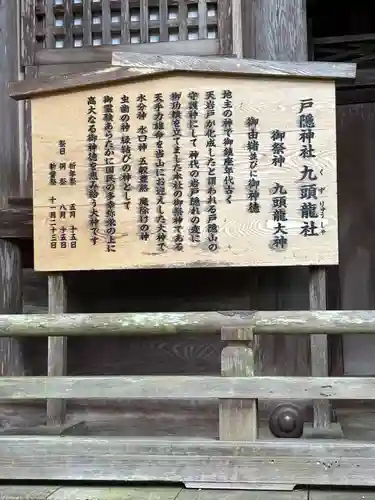 戸隠神社 九頭龍社
くずりゅうしゃ
御祭神 九頭龍大神
御由緒並びに御神徳
地主の神で御鎮座年代古く
天岩戸が化成したと謂われる戸隠山の
守護神にして 神代の岩戸隠れの変に
御功績を立てました本社の御祭神である
天手力雄命を当山にお迎えした大神で
水分神 水口神 五穀豊熟 魔除けの神
虫歯の神 縁結びの神として
御霊験あらたかに国民の多幸弥栄の上に
高大なる御神徳を恵み給う大神です
祭日 祈年祭 五月 十五日
例祭 八月 十五日
新嘗祭 十一月 二十三日